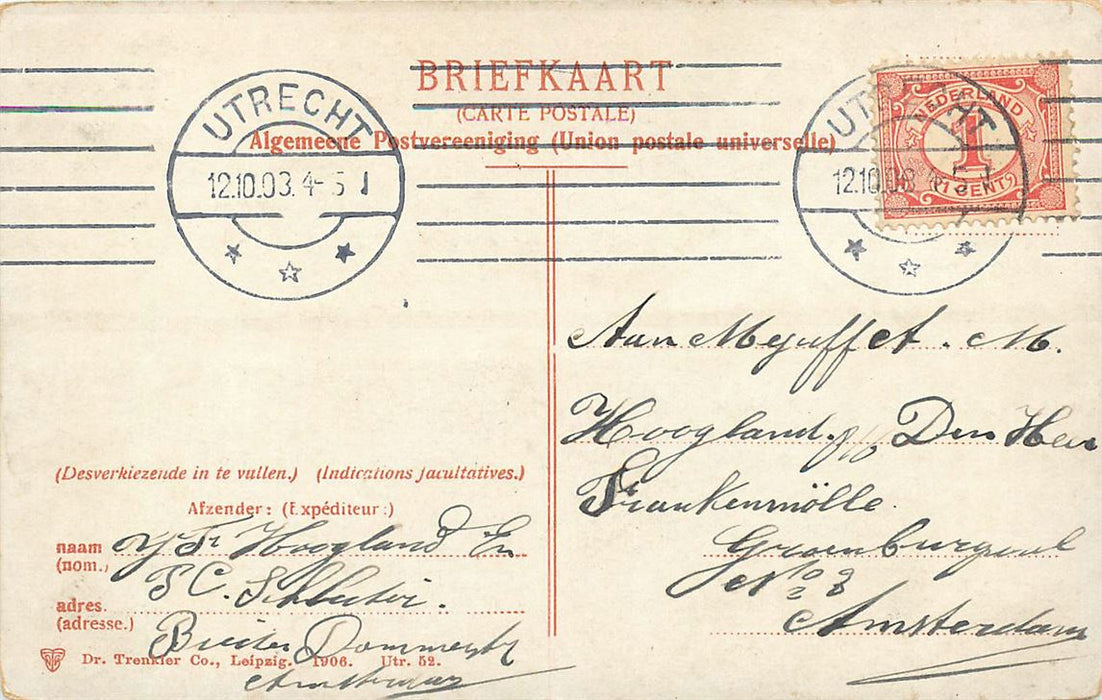 BRIEFKAART
(CARTE POSTALE)
Algemeene Postvereeniging (Union postale universelle)
UTRECHT
12.10.03. 4-5
UTRECHT
12.10.08
NEDERLAND
1
1 CENT
Aan Mejuffer. M.
Hoogland. p/a Den Heer
Frankenmölle.
Groenburgwal
No
Amsterdam
(Desverkiezende in te vullen.) (Indications facultatives.)
Afzender: (Expéditeur:)
naam Hoogland En
(nom.)
adres.
(adresse.)
Dr. Trenkler Co., Leipzig. 1906. Utr. 52.